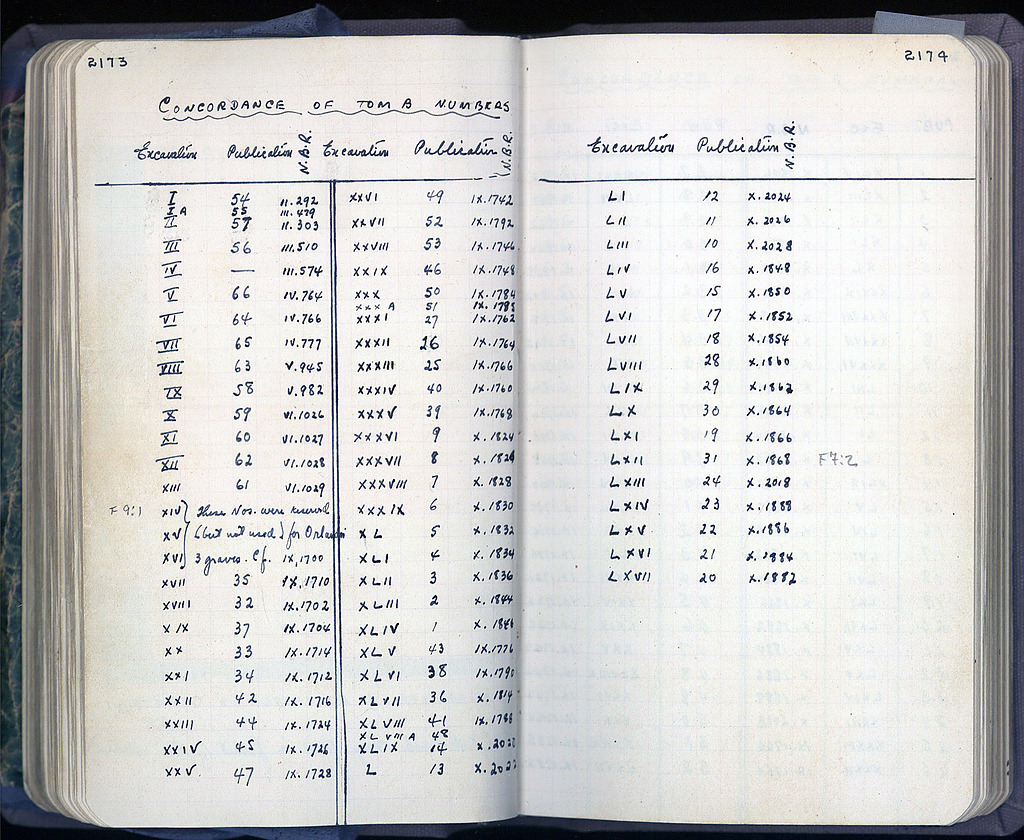 2173
CONCORDANCE OF TOMB NUMBERS
Excavation Publication N.B.R. Excavation Publication N.B.R.
I 54 II.292 XXVI 49 IX.1742
I A 55 III.479
II 57 II.303 XXVII 52 IX.1792
III 56 III.510 XXVIII 53 IX.1746
IV — III.574 XXIX 46 IX.1748
V 66 IV.764 XXX 50 IX.1784
XXX A 51 IX.1788
VI 64 IV.766 XXXI 27 IX.1762
VII 65 IV.777 XXXII 26 IX.1764
VIII 63 V.945 XXXIII 25 IX.1766
IX 58 V.982 XXXIV 40 IX.1760
X 59 VI.1026 XXXV 39 IX.1768
XI 60 VI.1027 XXXVI 9 X.1824
XII 62 VI.1028 XXXVII 8 X.1826
XIII 61 VI.1029 XXXVIII 7 X.1828
F 9:1 XIV These Nos. were reserved XXXIX 6 X.1830
XV (but not used) for Orlandos' XL 5 X.1832
XVI 3 graves. Cf. IX,1700 XLI 4 X.1834
XVII 35 IX,1710 XLII 3 X.1836
XVIII 32 IX.1702 XLIII 2 X.1844
XIX 37 IX.1704 XLIV 1 X.1846
XX 33 IX.1714 XLV 43 IX.1776
XXI 34 IX.1712 XLVI 38 IX.1790
XXII 42 IX.1716 XLVII 36 IX.1814
XXIII 44 IX.1724 XLVIII 41 IX.1788
XLVIII A 48
XXIV 45 IX.1726 XLIX 14 X.2020
XXV 47 IX.1728 L 13 X.2022
2174
Excavation Publication N.B.R.
LI 12 X.2024
LII 11 X.2026
LIII 10 X.2028
LIV 16 X.1848
LV 15 X.1850
LVI 17 X.1852
LVII 18 X.1854
LVIII 28 X.1860
LIX 29 X.1862
LX 30 X.1864
LXI 19 X.1866
LXII 31 X.1868 F7:2
LXIII 24 X.2018
LXIV 23 X.1888
LXV 22 X.1886
LXVI 21 X.1884
LXVII 20 X.1882